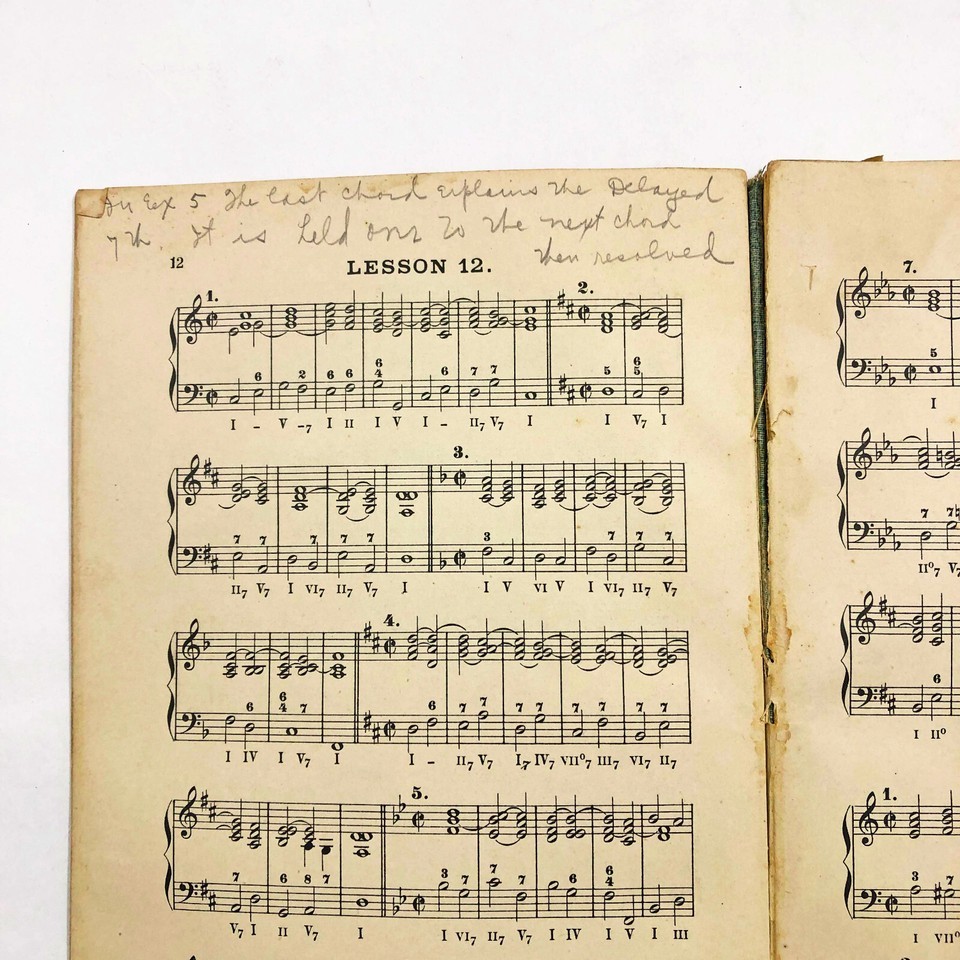 In Ex 5 The last chord explains the Delayed
7th. It is held over to the next chord
then resolved
12
LESSON 12.
1. 2.
6 2 6 6 6 4 6 7 7 5 6 5
I – V –7 I II I V I – II7 V7 I I V7 I
3.
7 7 7 7 7 3 7 7 7
II7 V7 I VI7 II7 V7 I I V VI V I VI7 II7 V7
4.
6 6 4 7 6 7 7 7 7 7 7 7 7
I IV I V7 I I – II7 V7 I7 IV7 VII°7 III7 VI7 II7
5.
7 6 8 7 3 7 7 7 6 6 4
V7 I II V7 I I VI7 II7 V7 I IV I V I III
7.
5
I
7 7
II°7 V7
6
I II°
1.
3 7
I VII°